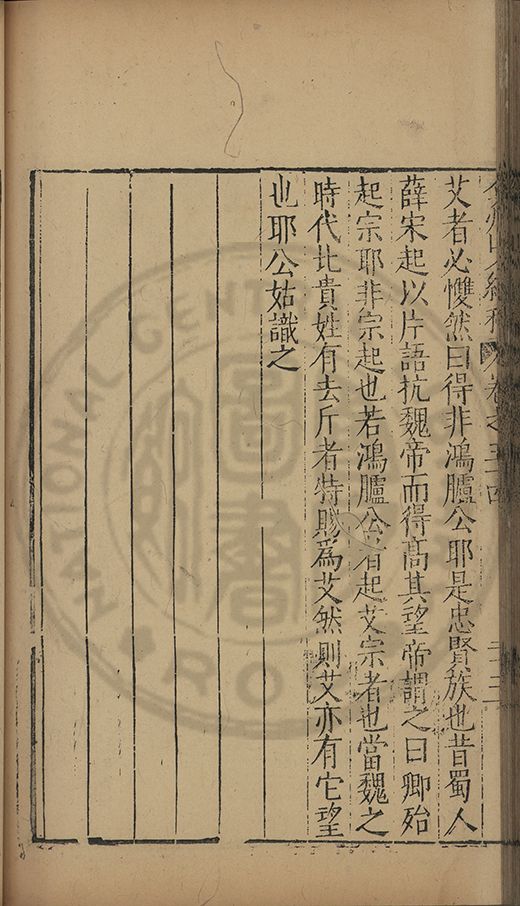 卷之三十四
艾者必戄然曰得非鴻臚公耶是忠賢族也昔蜀人
薛宋起以片語抗魏帝而得高其望帝謂之曰卿殆
起宗耶非宗起也若鴻臚公者起艾宗者也當魏之
時代北貴姓有去斤者特賜為艾然則艾亦有它望
也耶公姑識之